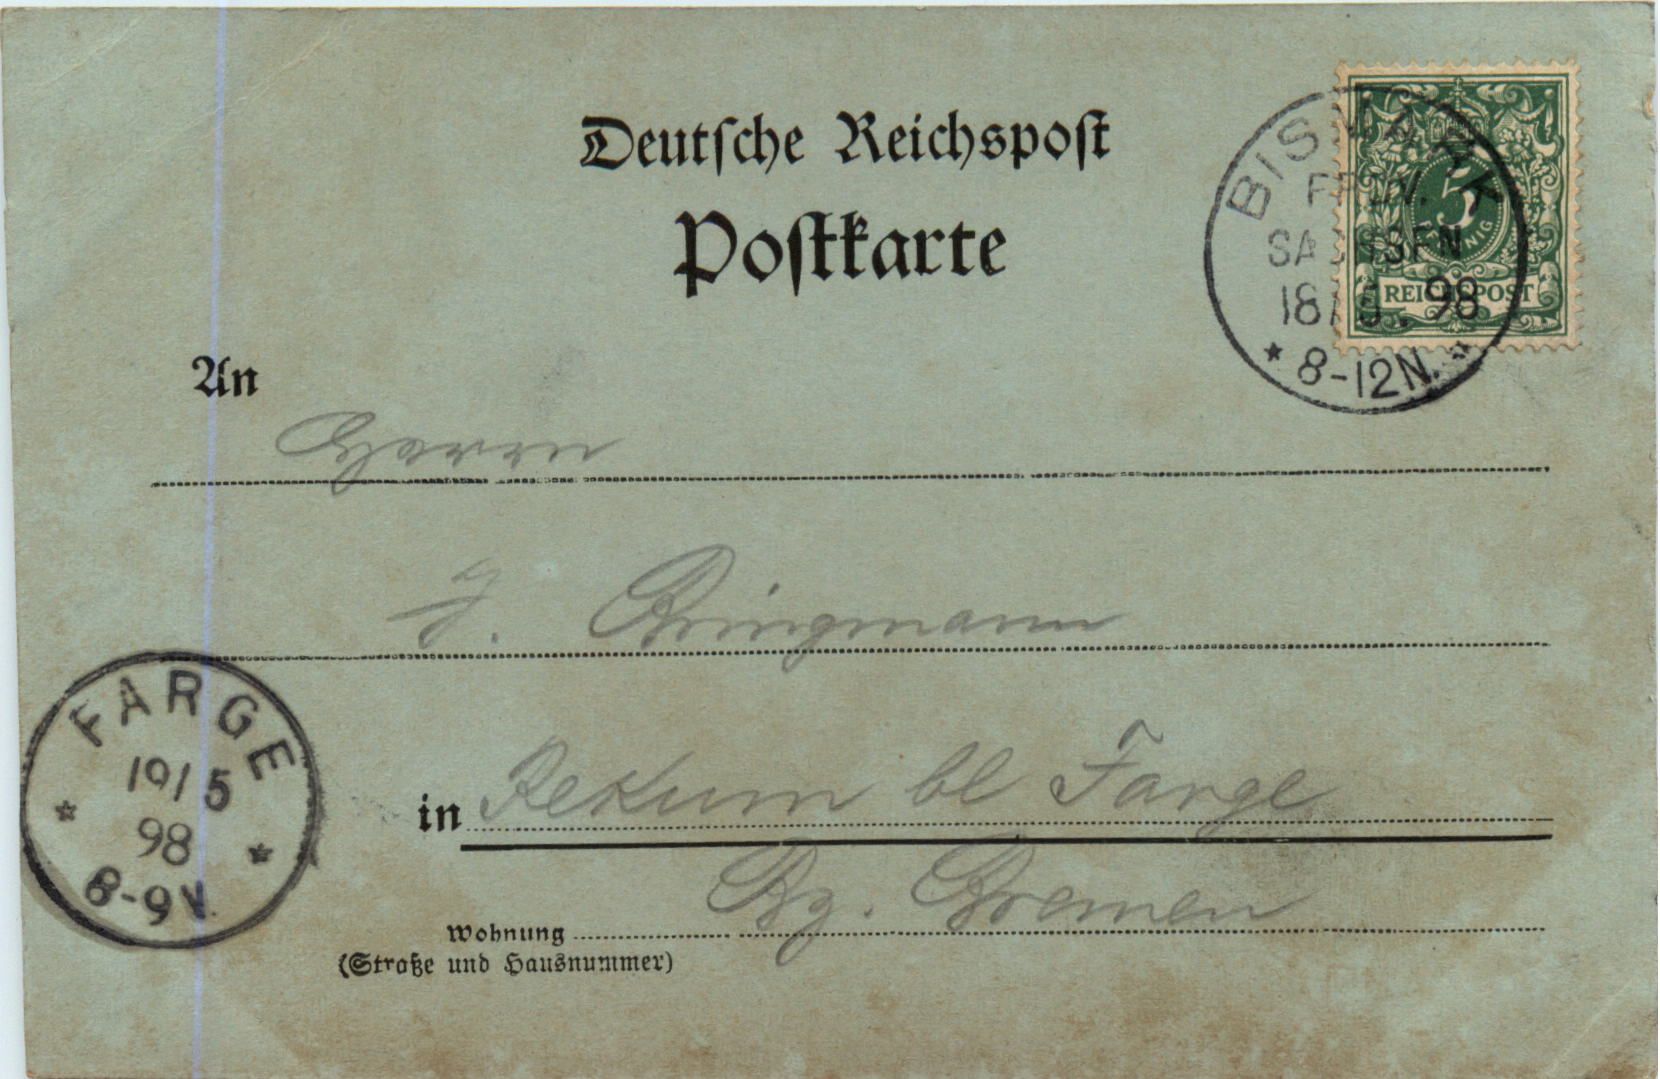 Deutsche Reichspost
Postkarte
BISMARK
PROV.
SACHSEN
18/5.98
* 8-12N. *
5
PFENNIG
REICHSPOST
An
Herrn
J. Bringmann
in Rekum bl Farge
Bz. Bremen
Wohnung
(Straße und Hausnummer)
FARGE
19/5
98
* *
8-9V.